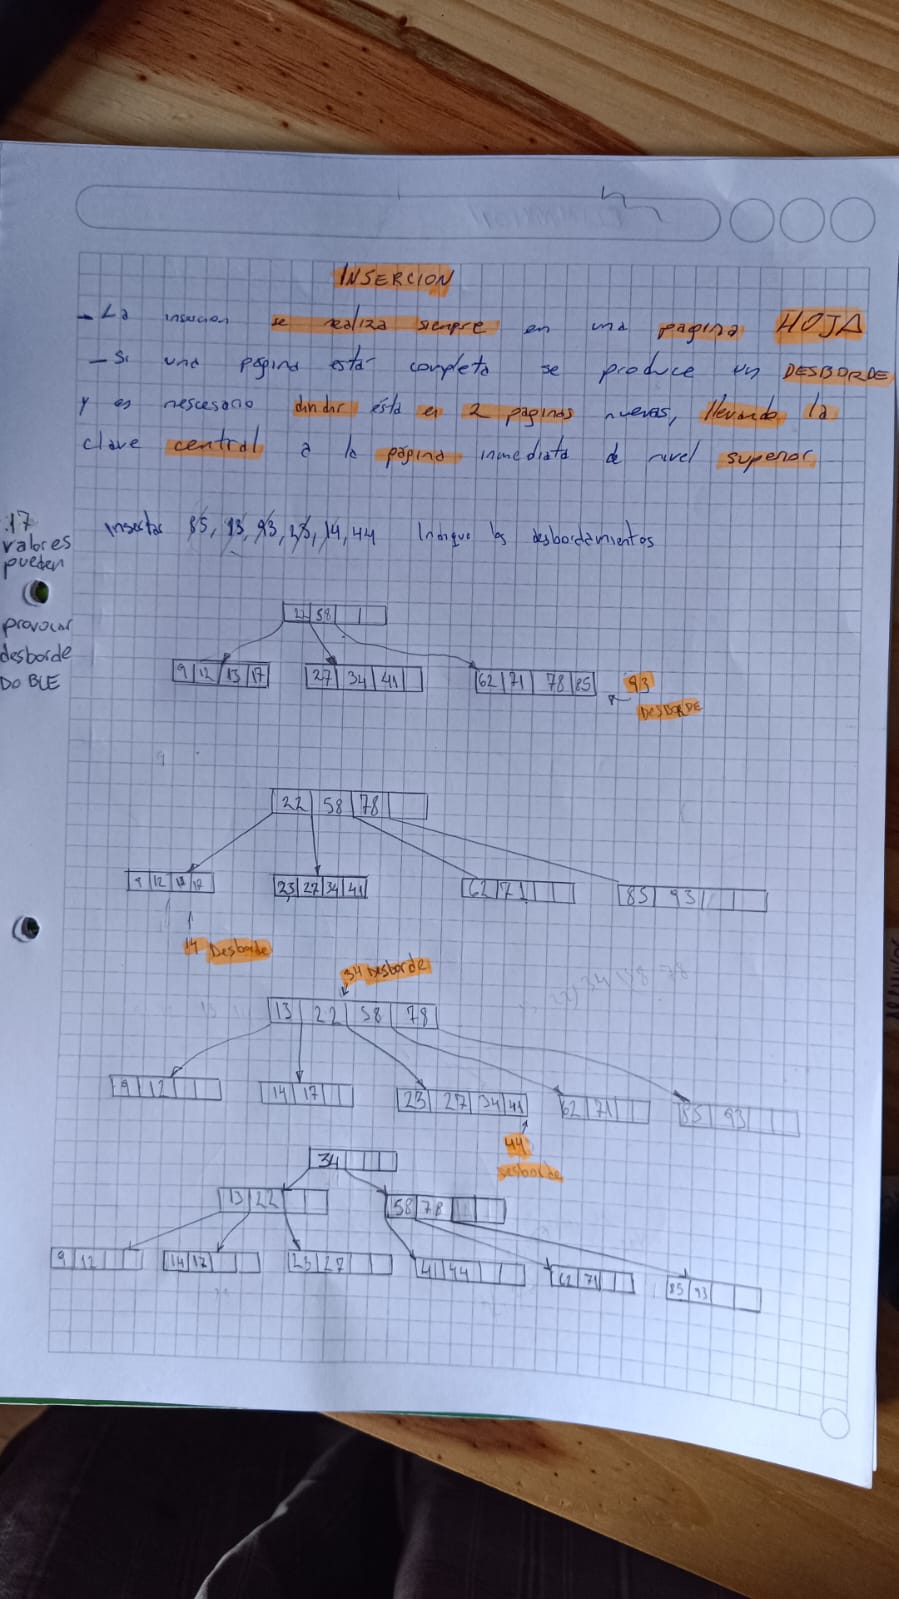 INSERCION
- La insercion se realiza siempre en una pagina HOJA
- Si una página está completa se produce un DESBORDE
y es nescesario dividir ésta en 2 paginas nuevas, llevando la
clave central a la página inmediata de nivel superior.
17
valores
pueden
provocar
desborde
DOBLE
Insertar 85, 13, 93, 23, 14, 44 Indique los desbordamientos
22 58
9 12 13 17 27 34 41 62 71 78 85 93
DESBORDE
22 58 78
9 12 13 17 23 27 34 41 62 71 85 93
14 Desborde
34 Desborde
13 22 58 78
9 12 14 17 23 27 34 41 62 71 85 93
44
desborde
34
13 22 58 78
9 12 14 17 23 27 41 44 62 71 85 93